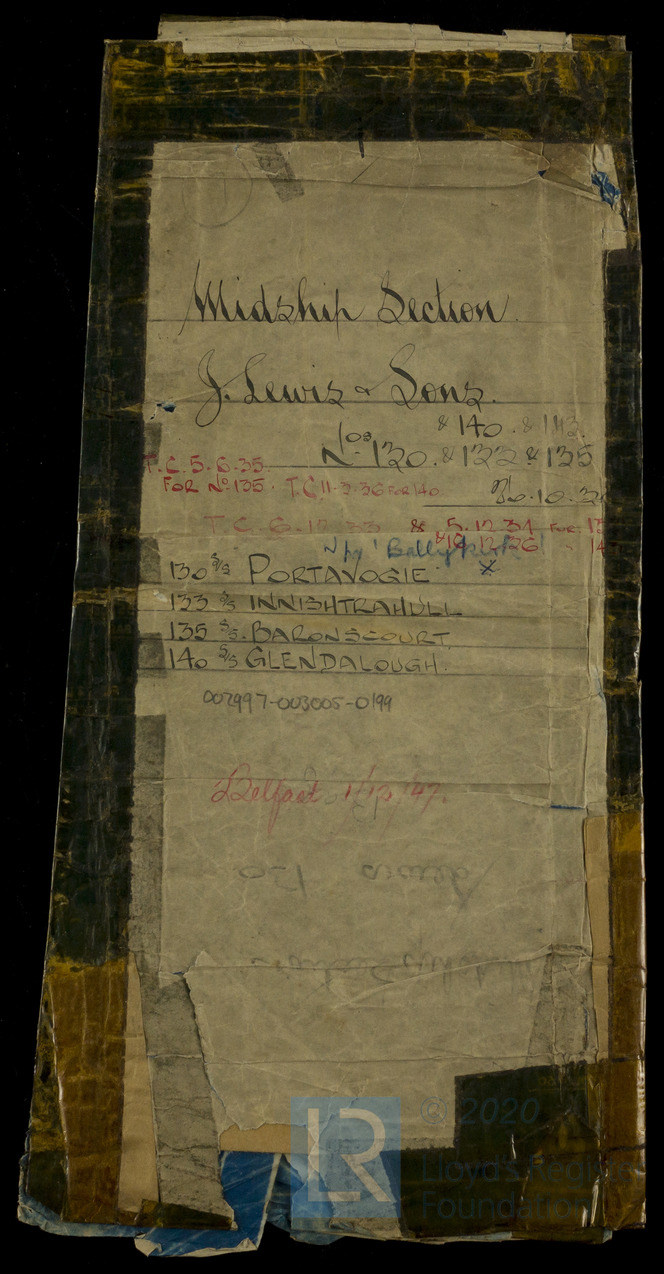 Midship Section.
J. Lewis & Sons.
& 140. & 143.
Nos 130. & 132 & 135
T.C. 5.6.35
FOR No 135. T.C. 11.3.36 FOR 140
10.3
T.C. 6.12.33 & 5.12.34 FOR
now 'Ballykirk'
130 S/S PORTAVOGIE
133 S/S INNISHTRAHULL
135 S/S. BARONSCOURT.
140 S/S GLENDALOUGH.
002997-003005-0199
Belfast 1/12/47.
LR
© 2020
Lloyd's Register
Foundation